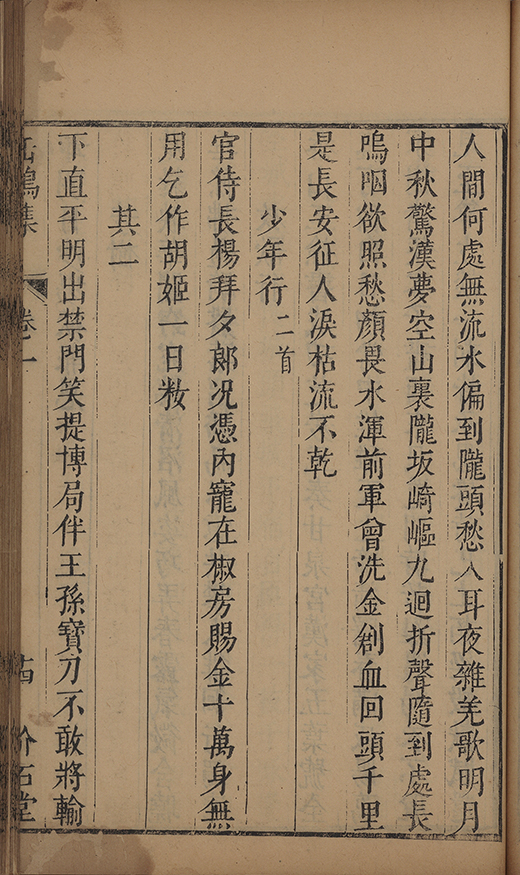 人間何處無流水偏到隴頭愁人耳夜雜羌歌明月
中秋驚漢夢空山裏隴坂崎嶇九迴折聲隨到處長
嗚咽欲照愁顏畏水渾前軍曾洗金創血回頭千里
是長安征人淚枯流不乾
少年行二首
官侍長楊拜夕郞况憑內寵在椒房賜金十萬身無
用乞作胡姬一日粧
其二
下直平明出禁門笑提博局伴王孫寶刀不敢將輸
鳴集 卷一 介石堂